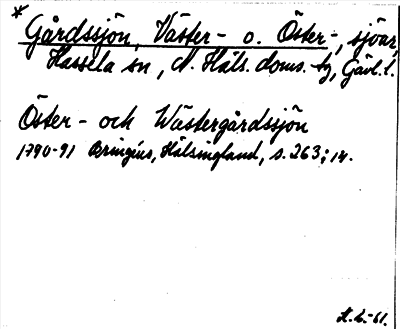 * Gårdssjön, Väster- o. Öster-, sjöar,
Hassela sn, N. Häls. doms. tg, Gävl. l.
Öster- och Wästergårdssjön
1790-91 Bringéus, Hälsingland, s. 263; 14.